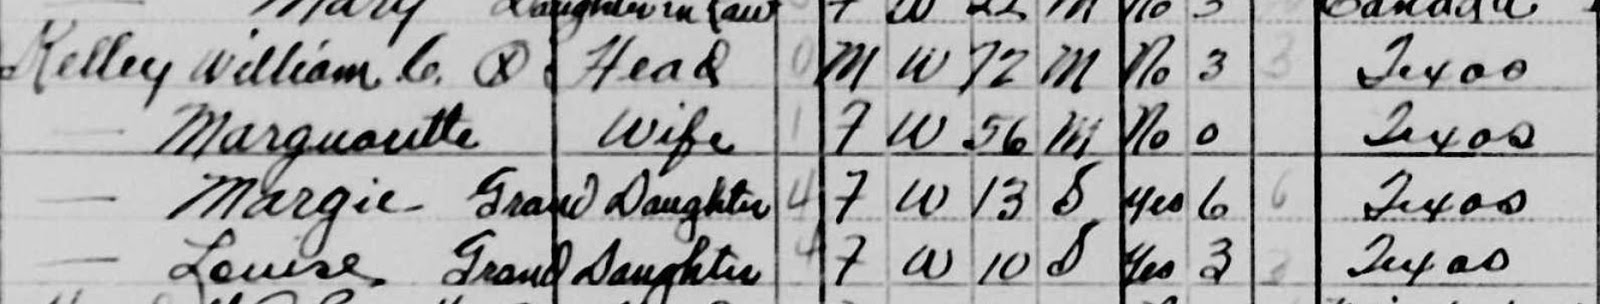 Mary Daughter in law F W 22 M No 3 Canada
Kelley William C. Ⓧ Head 0 M W 72 M No 3 3 Texas
— Marguarutte Wife 1 F W 56 M No 0 Texas
— Margie Grand Daughter 4 F W 13 S Yes 6 6 Texas
— Louise Grand Daughter 4 F W 10 S Yes 3 3 Texas